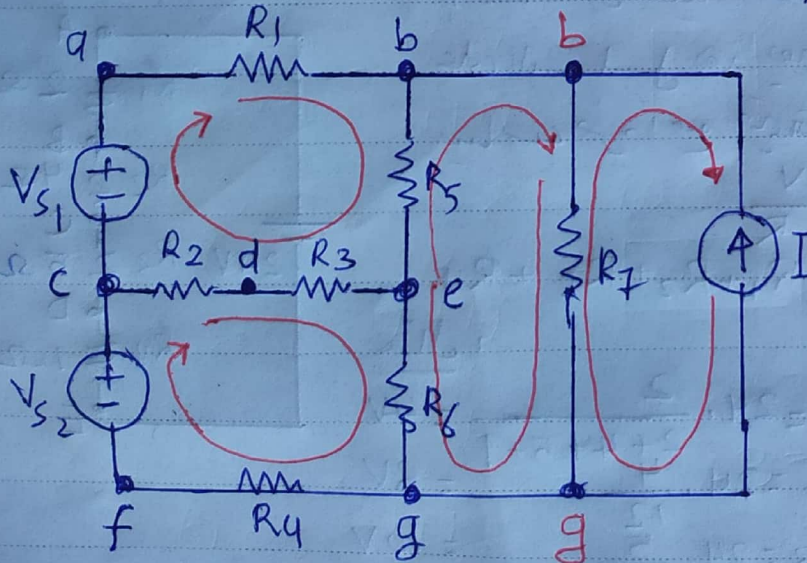 a
R1
b
b
VS1
+
−
R5
c
R2
d
R3
e
R7
I
VS2
+
−
R6
f
R4
g
g